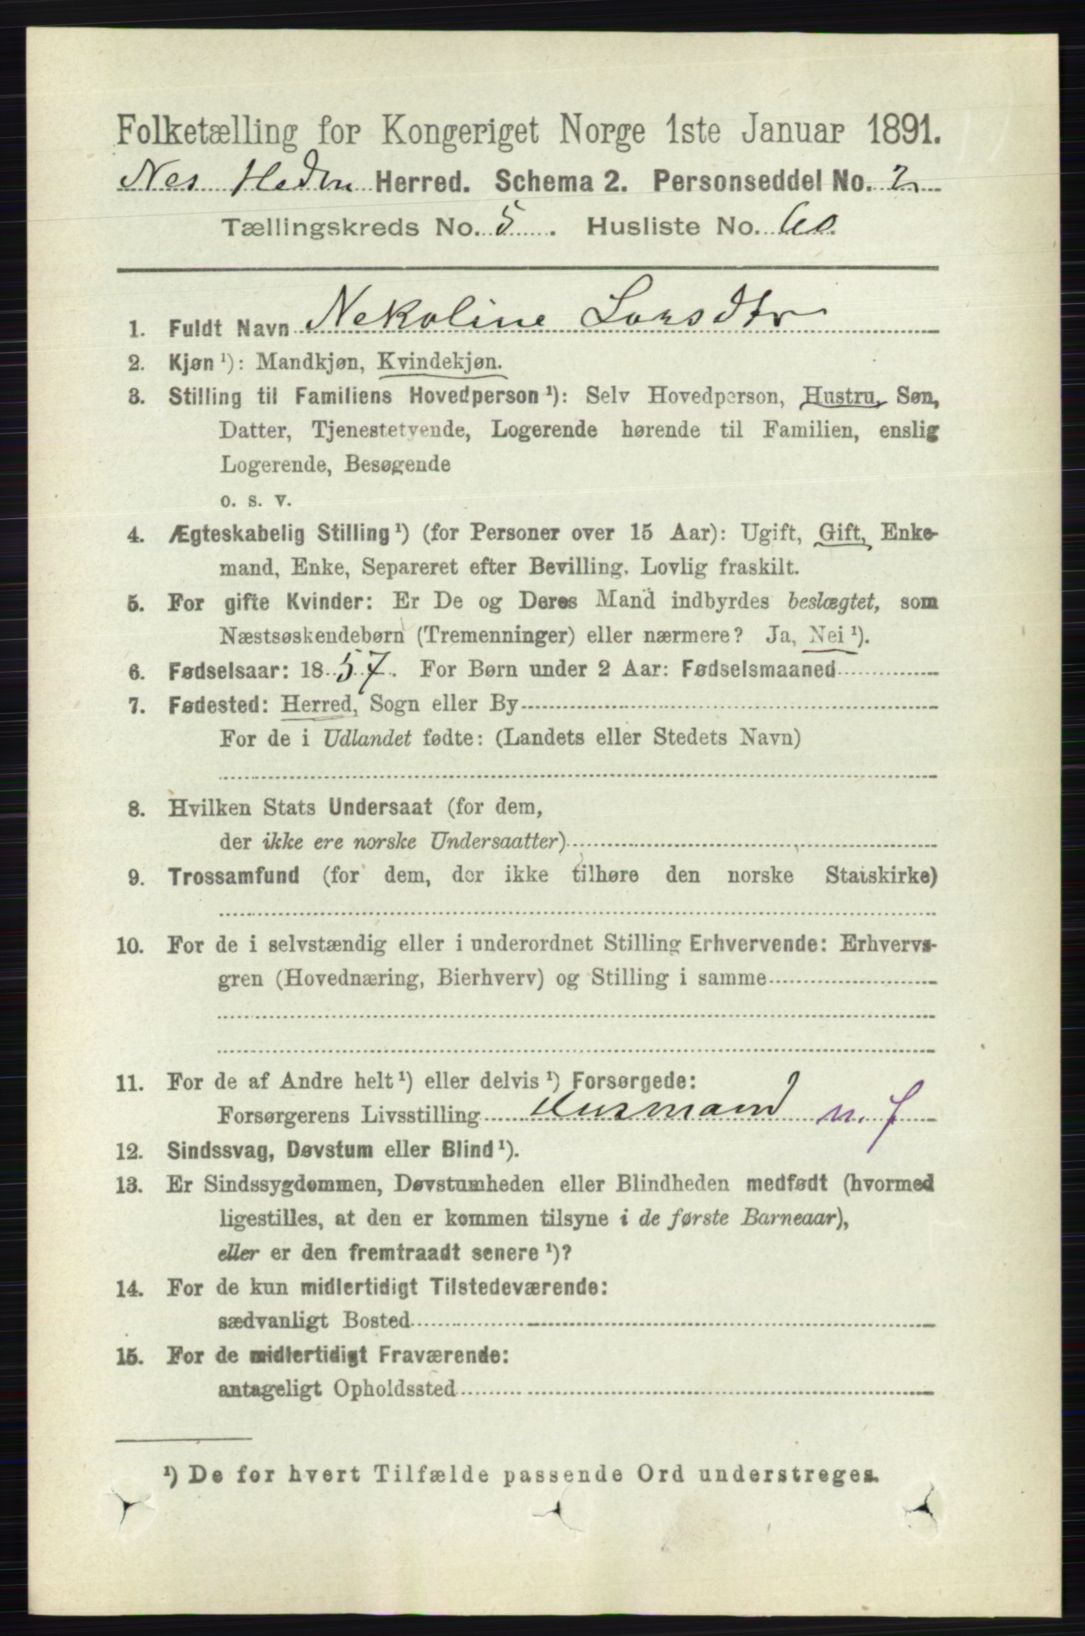 Folketælling for Kongeriget Norge 1ste Januar 1891.
Nes Hedm Herred. Schema 2. Personseddel No. 2
Tællingskreds No. 5. Husliste No. 60.
1. Fuldt Navn Nekoline Larsdtr
2. Kjøn ¹): Mandkjøn, Kvindekjøn.
3. Stilling til Familiens Hovedperson ¹): Selv Hovedperson, Hustru, Søn,
Datter, Tjenestetyende, Logerende hørende til Familien, enslig
Logerende, Besøgende
o. s. v.
4. Ægteskabelig Stilling ¹) (for Personer over 15 Aar): Ugift, Gift, Enke-
mand, Enke, Separeret efter Bevilling. Lovlig fraskilt.
5. For gifte Kvinder: Er De og Deres Mand indbyrdes beslægtet, som
Næstsøskendebørn (Tremenninger) eller nærmere? Ja, Nei ¹).
6. Fødselsaar: 1857. For Børn under 2 Aar: Fødselsmaaned
7. Fødested: Herred, Sogn eller By
For de i Udlandet fødte: (Landets eller Stedets Navn)
8. Hvilken Stats Undersaat (for dem,
der ikke ere norske Undersaatter)
9. Trossamfund (for dem, der ikke tilhøre den norske Statskirke)
10. For de i selvstændig eller i underordnet Stilling Erhvervende: Erhvervs-
gren (Hovednæring, Bierhverv) og Stilling i samme
11. For de af Andre helt ¹) eller delvis ¹) Forsørgede:
Forsørgerens Livsstilling Husmand m. f
12. Sindssvag, Døvstum eller Blind ¹).
13. Er Sindssygdommen, Døvstumheden eller Blindheden medfødt (hvormed
ligestilles, at den er kommen tilsyne i de første Barneaar),
eller er den fremtraadt senere ¹)?
14. For de kun midlertidigt Tilstedeværende:
sædvanligt Bosted
15. For de midlertidigt Fraværende:
antageligt Opholdssted
¹) De for hvert Tilfælde passende Ord understreges.